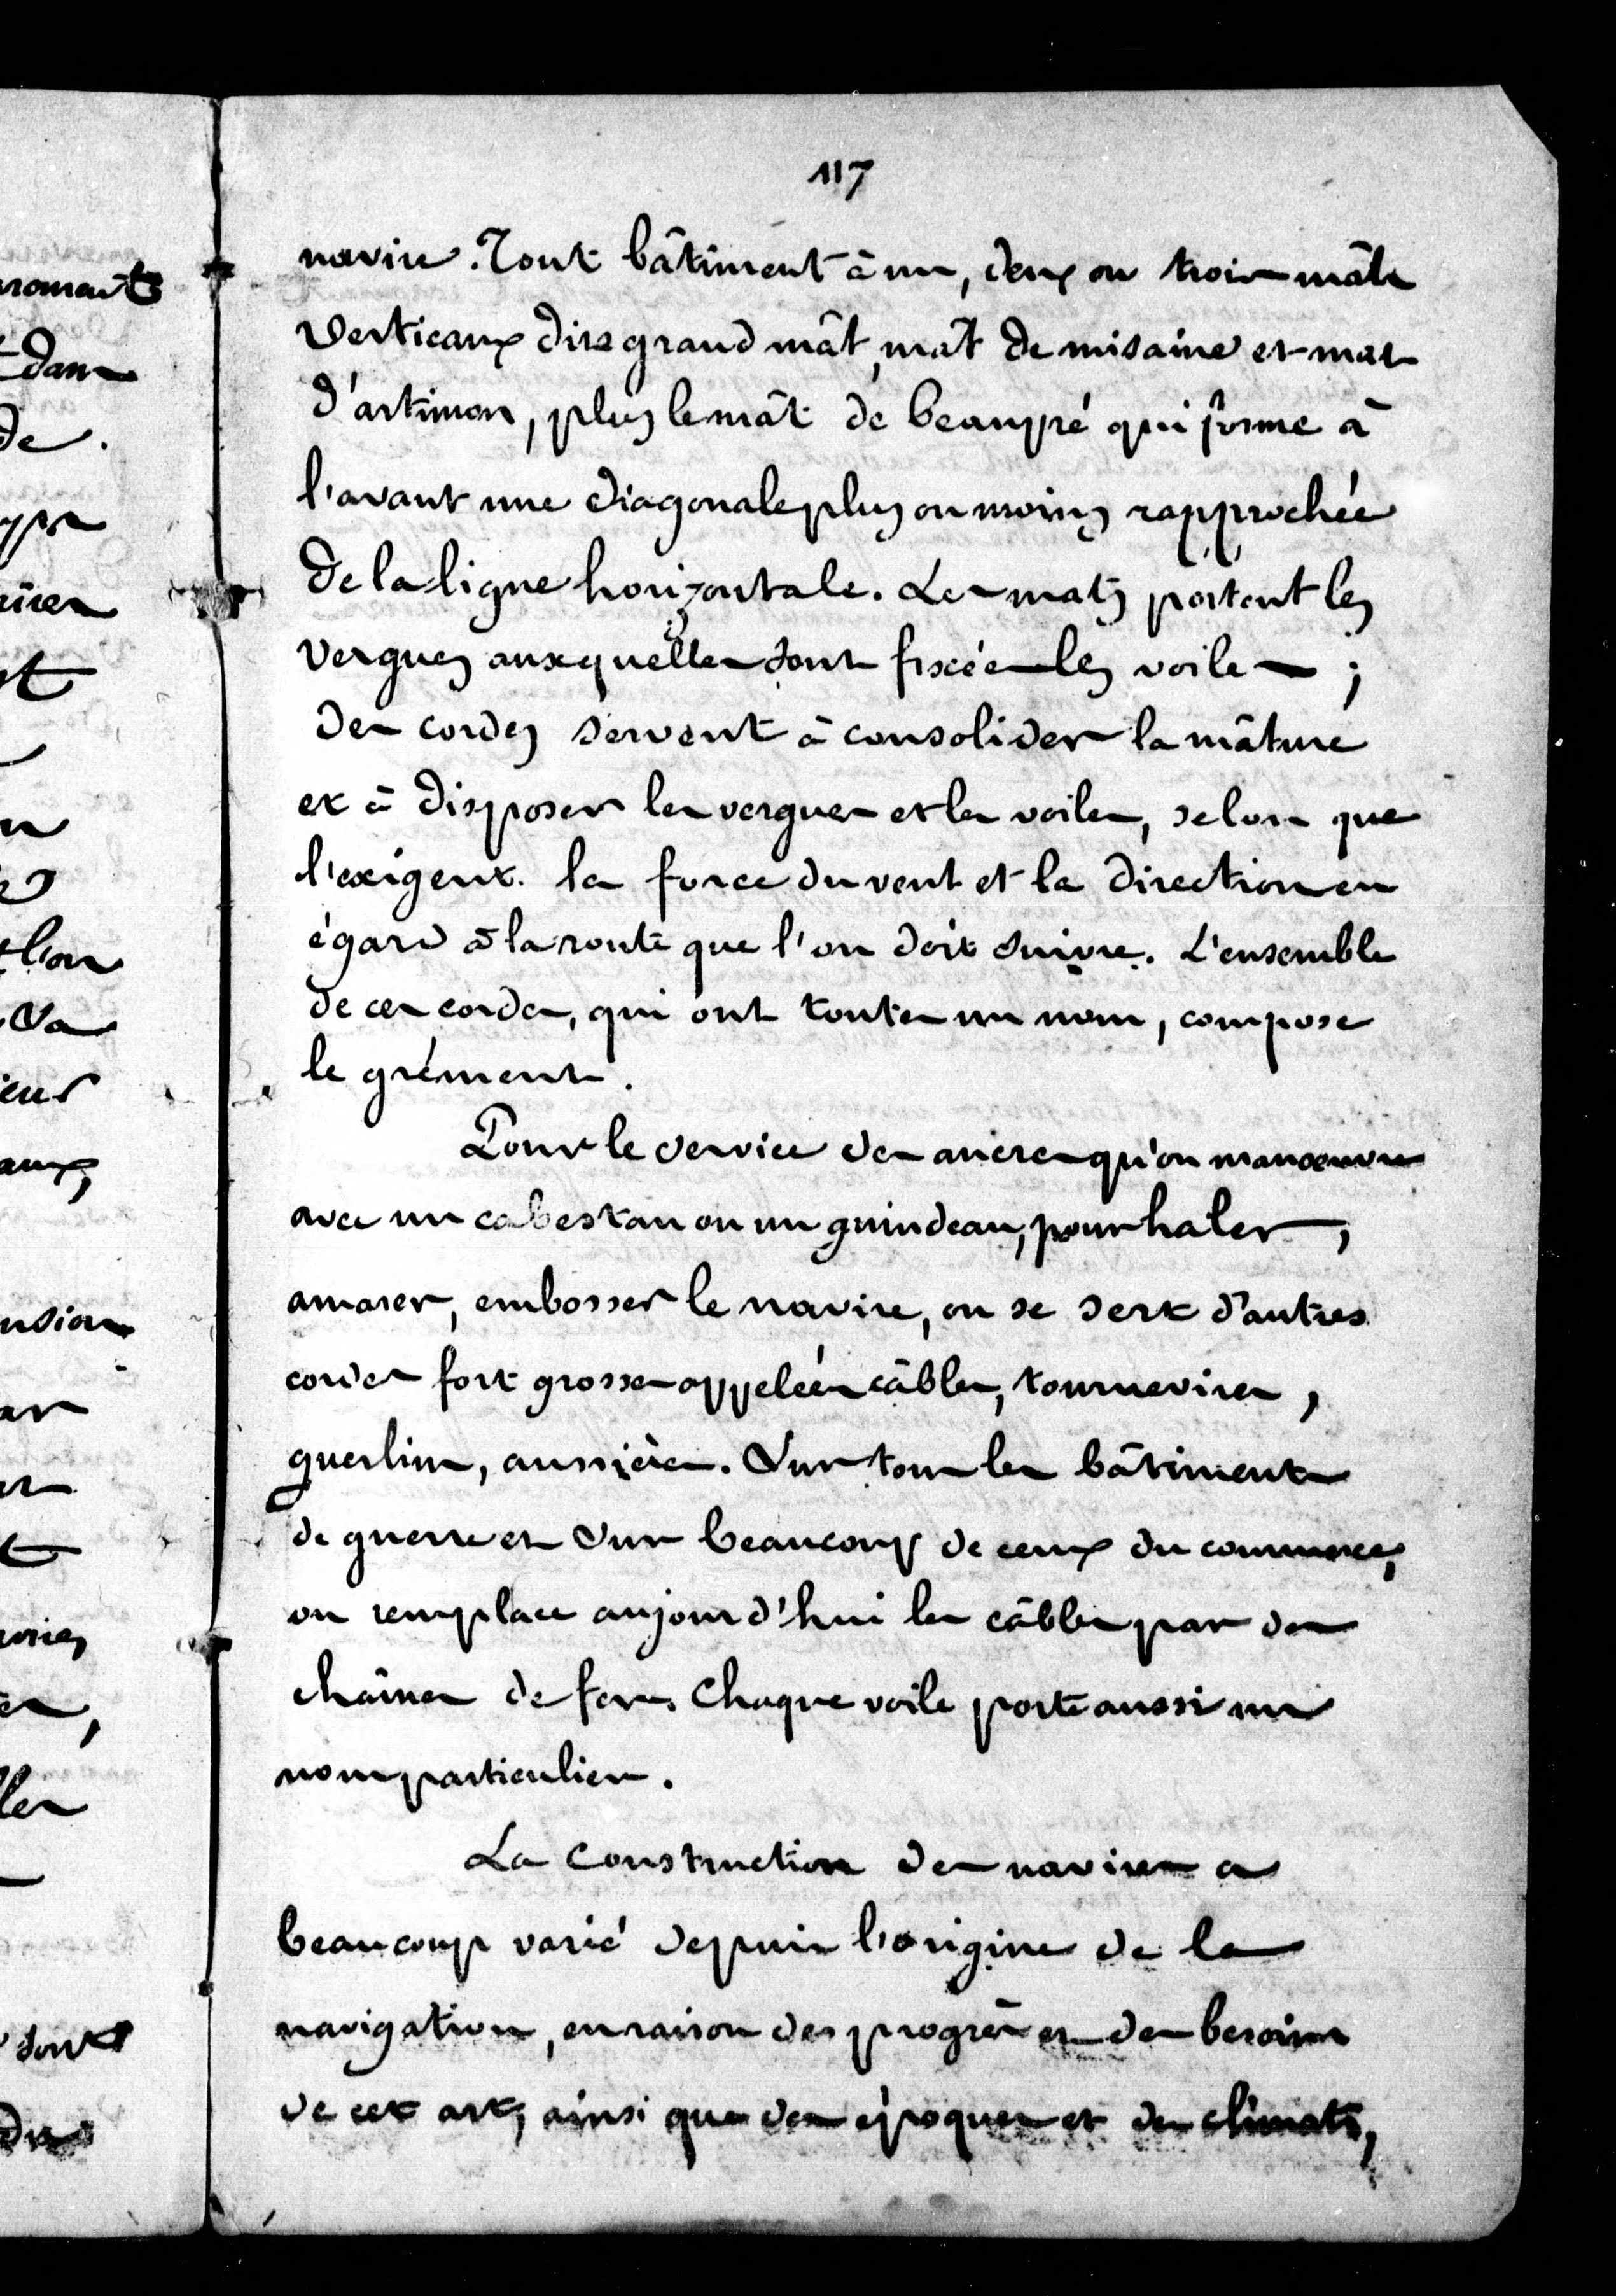 117
navire. Tout bâtiment à un, deux ou trois mâts
verticaux dits grand mât, mât de misaine et mat
d'artimon, plus le mât de beaupré qui forme à
l'avant une diagonale plus ou moins rapprochée
de la ligne horizontale. Les mats portent les
vergues auxquelles sont fixées les voiles ;
des cordes servent à consolider la mâture
et à disposer les vergues et les voiles, selon que
l'exigent la force du vent et la direction eu
égard à la route que l'on doit suivre. L'ensemble
de ces cordes, qui ont toutes un nom, compose
le grément.
Pour le service des ancres qu'on manœuvre
avec un cabestan ou un guindeau, pour haler,
amarer, embosser le navire, on se sert d'autres
cordes fort grosses appelées câbles, tournevires,
guerlins, aussières. Sur tous les bâtiments
de guerre et sur beaucoup de ceux du commerce,
on remplace aujourd'hui les câbles par des
chaînes de fer. Chaque voile porte aussi un
nom particulier.
La construction des navires a
beaucoup varié depuis l'origine de la
navigation, en raison des progrès et des besoins
de cet art, ainsi que des époques et des climats,